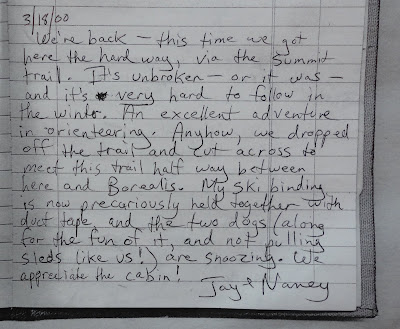 3/18/00
We're back — this time we got
here the hard way, via the Summit
trail. It's unbroken — or it was —
and it's very hard to follow in
the winter. An excellent adventure
in orienteering. Anyhow, we dropped
off the trail and cut across to
meet this trail half way between
here and Borealis. My ski binding
is now precariously held together with
duct tape, and the two dogs (along
for the fun of it, and not pulling
sleds like us!) are snoozing. We
appreciate the cabin!
Jay + Nancy